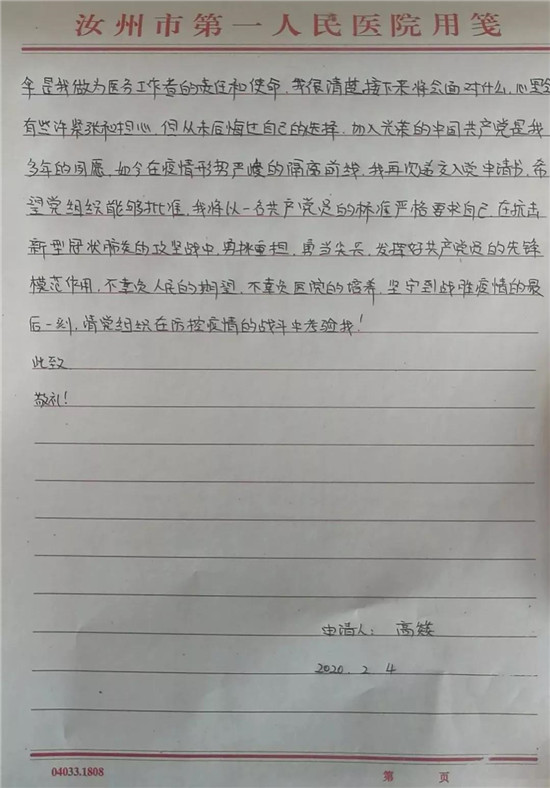 汝州市第一人民医院用笺
是我做为医务工作者的责任和使命,我很清楚接下来将会面对什么,心里
有些许紧张和担心,但从未后悔过自己的选择,加入光荣的中国共产党是我
多年的夙愿,如今在疫情形势严峻的隔离前线,我再次递交入党申请书,希
望党组织能够批准,我将以一名共产党员的标准严格要求自己,在抗击
新型冠状肺炎的攻坚战中,勇挑重担,勇当尖兵,发挥好共产党员的先锋
模范作用,不辜负人民的期望,不辜负医院的培养,坚守到战胜疫情的最
后一刻,请党组织在防控疫情的战斗中考验我!
此致
敬礼!
申请人: 高
2020.2 4
04033.1808
第 页